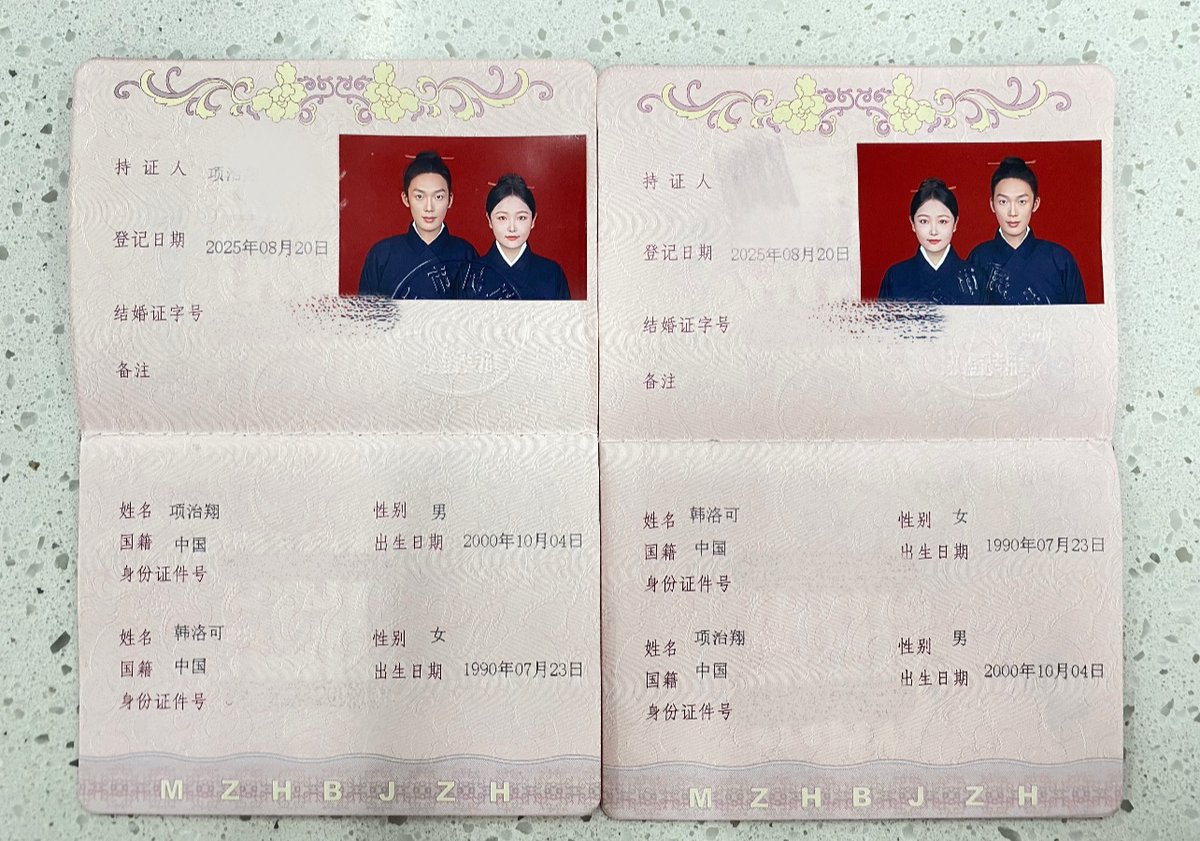 持证人 项治
登记日期 2025年08月20日
结婚证字号
备注
姓名 项治翔 性别 男
国籍 中国 出生日期 2000年10月04日
身份证件号
姓名 韩洛可 性别 女
国籍 中国 出生日期 1990年07月23日
身份证件号
MZHBJZH
持证人
登记日期 2025年08月20日
结婚证字号
备注
姓名 韩洛可 性别 女
国籍 中国 出生日期 1990年07月23日
身份证件号
姓名 项治翔 性别 男
国籍 中国 出生日期 2000年10月04日
身份证件号
MZHBJZH